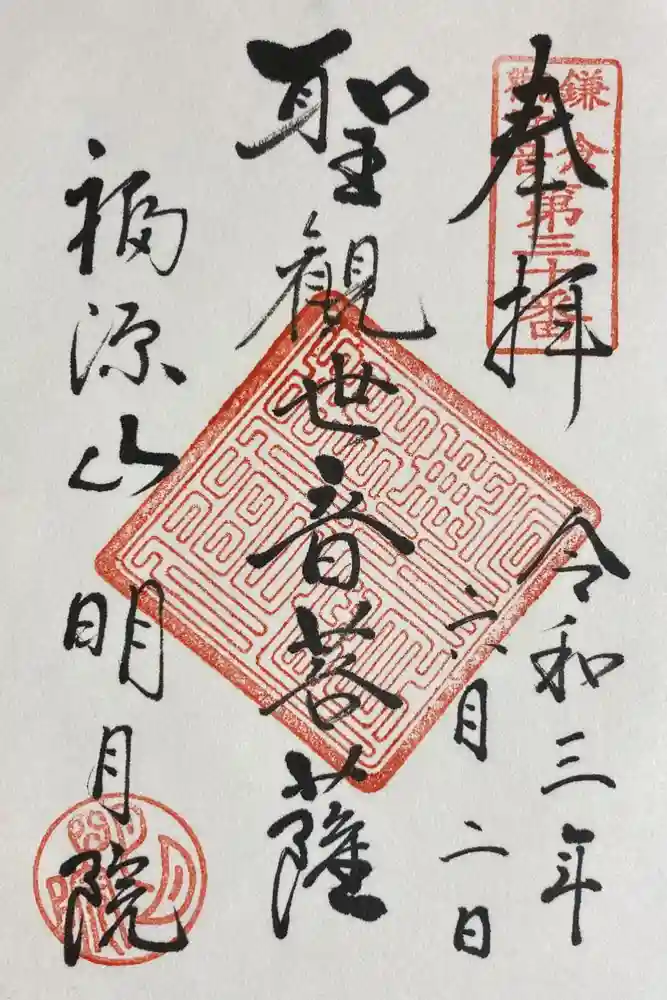 奉拝
鎌倉
観音
第三十番
令和三年
六月二日
聖観世音菩薩
福源山明月院